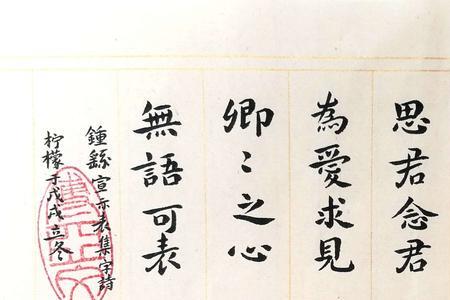 思君念君
為愛求見
卿〻之心
無語可表
鍾繇宣示表集字詩
柠檬于戊戌立冬